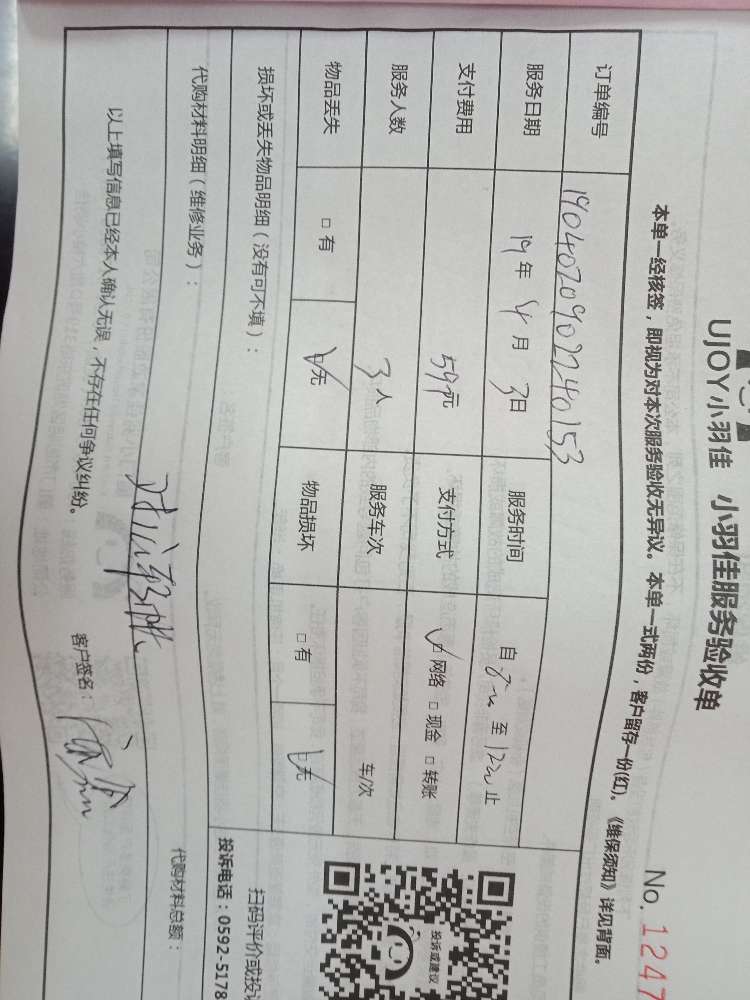 UJOY小羽佳 小羽佳服务验收单
No. 1247
本单一经核签，即视为对本次服务验收无异议。本单一式两份，客户留存一份(红)。《维保须知》详见背面。
订单编号 19040209022240153
服务日期 19年 4月 3日 服务时间 自 至 止
支付费用 597元 支付方式 ☑ 网络 □ 现金 □ 转账
服务人数 3人 服务车次 车/次
物品丢失 □ 有 ☑ 无 物品损坏 □ 有 ☑ 无
损坏或丢失物品明细（没有可不填）：
代购材料明细（维修业务）：
代购材料总额：
以上填写信息已经本人确认无误，不存在任何争议纠纷。
客户签名：
投诉或建议
扫码评价或投
投诉电话：0592-5178